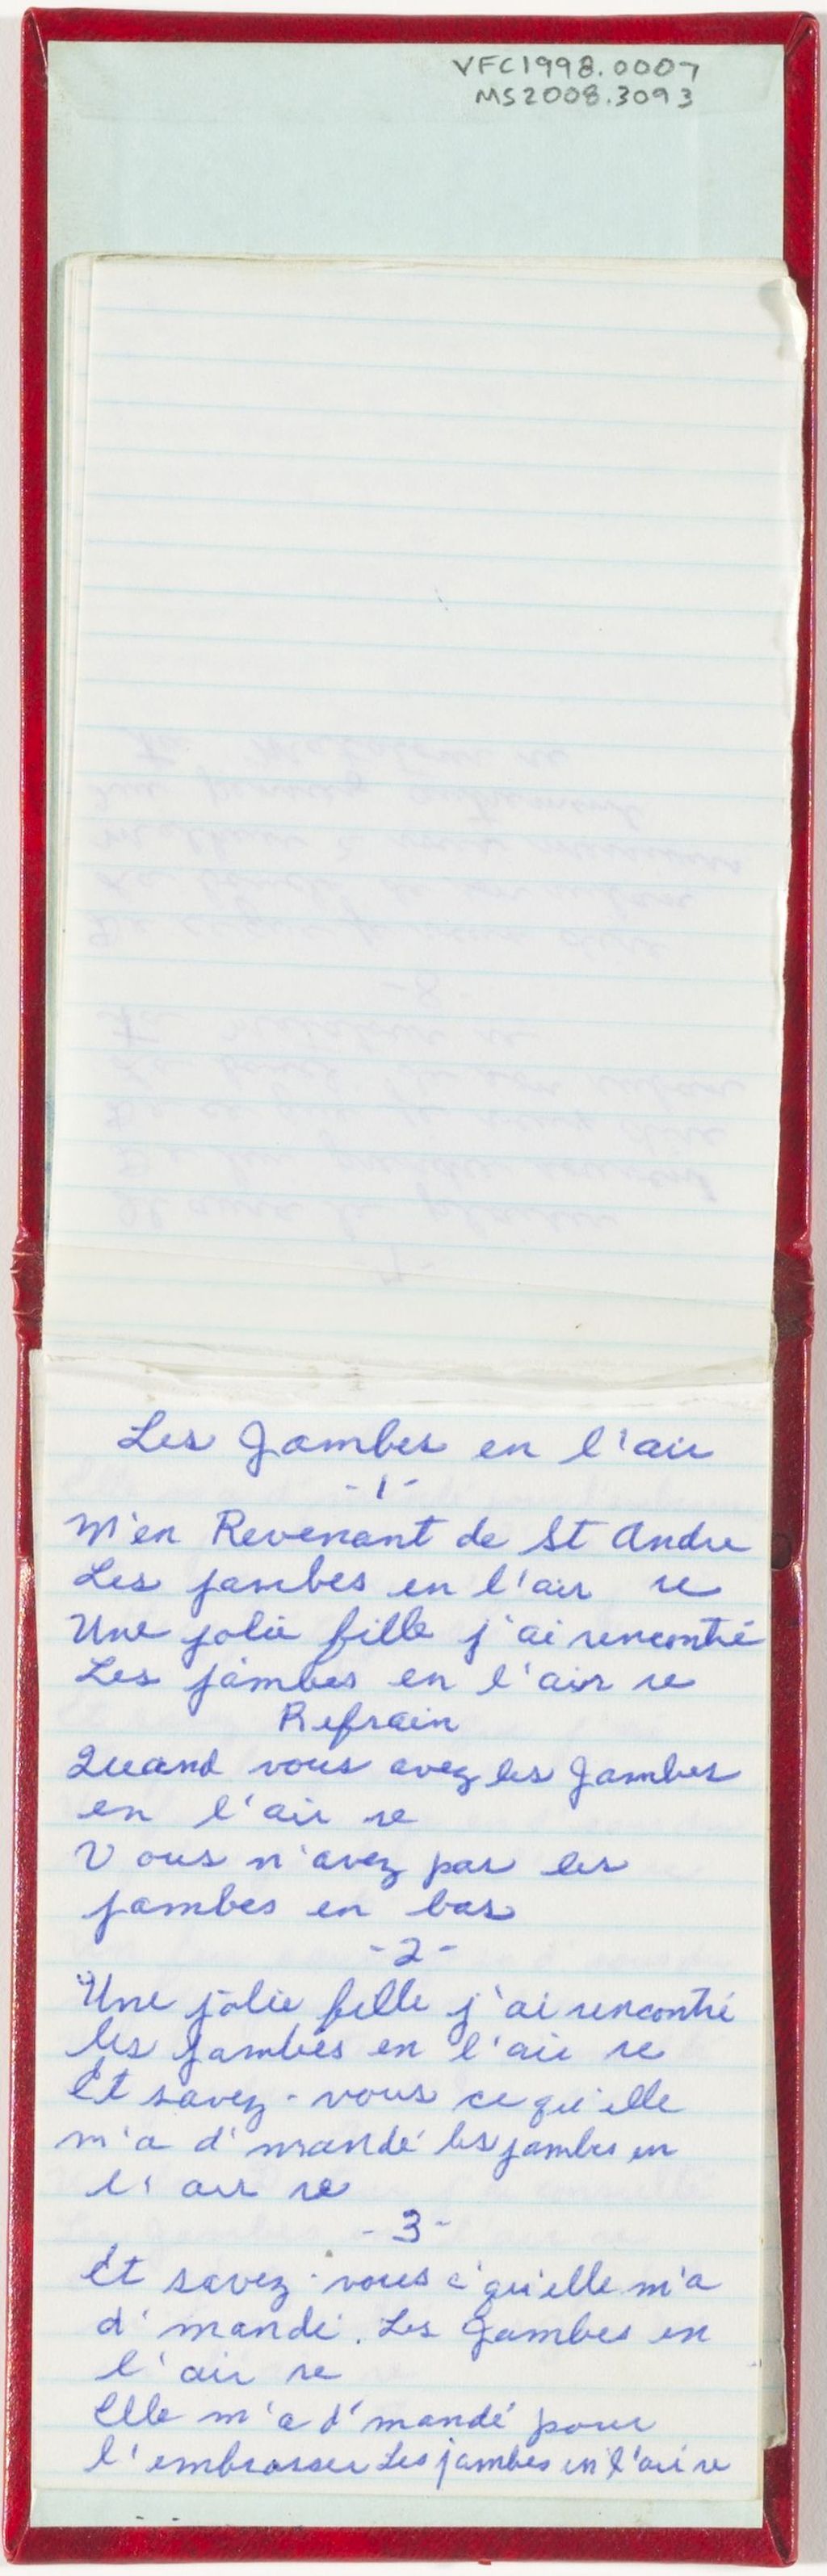 VFC1998.0007
MS2008.3093
Les Jambes en l'air
-1-
M'en Revenant de St Andre
Les jambes en l'air re
Une jolie fille j'ai rencontré
Les jambes en l'air re
Refrain
Quand vous avez les Jambes
en l'air re
Vous n'avez pas les
jambes en bas
-2-
Une jolie fille j'ai rencontré
les jambes en l'air re
Et savez-vous ce qu'elle
m'a d'mandé les jambes en
l'air re
-3-
Et savez-vous c'qu'elle m'a
d'mandé. Les Jambes en
l'air re
Elle m'a d'mandé pour
l'embrasser Les jambes en l'air re